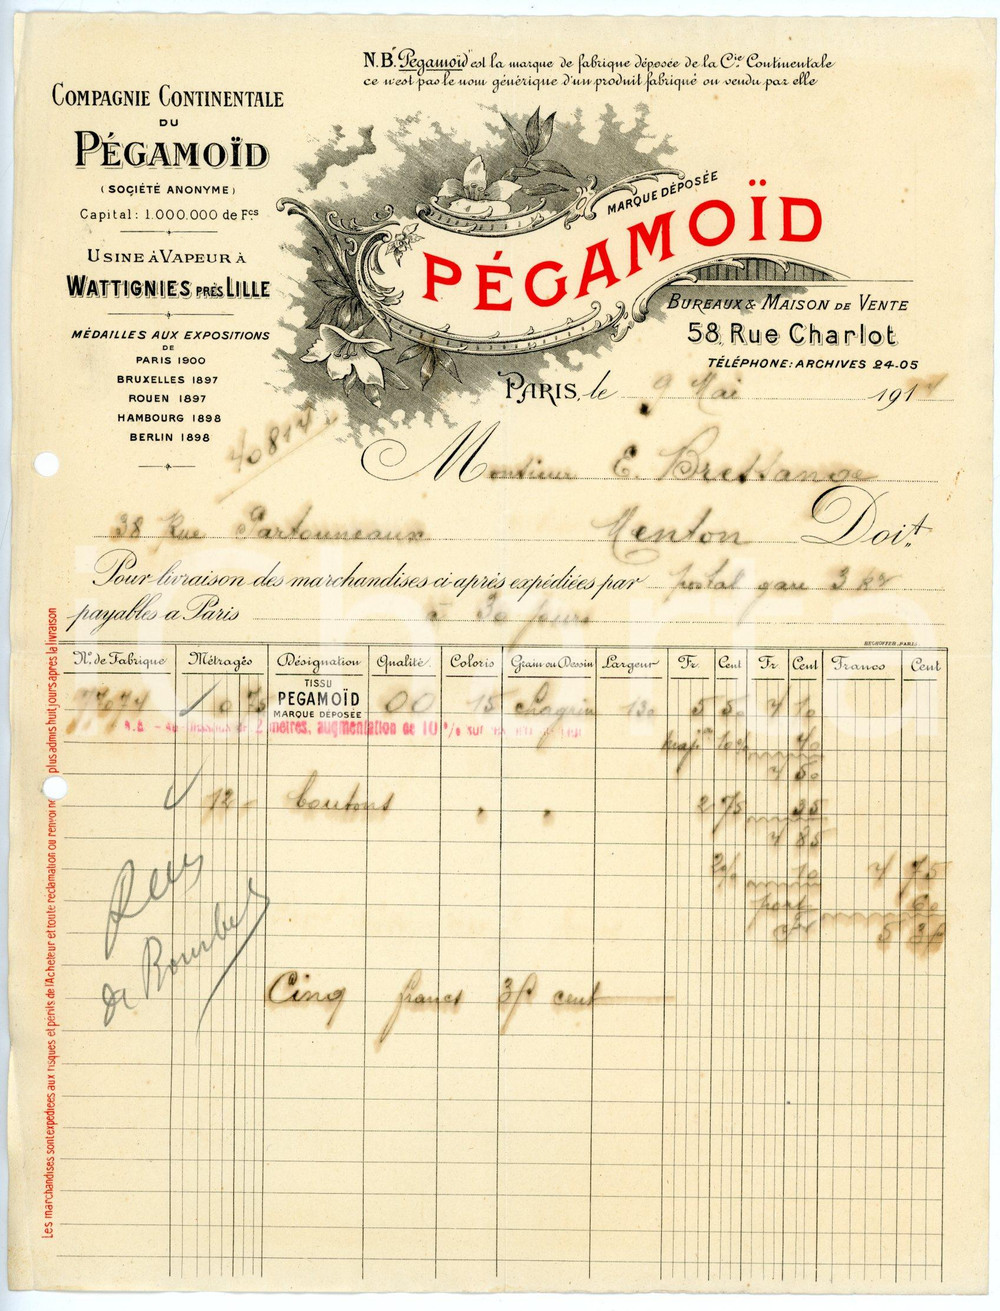 N.B. Pégamoïd est la marque de fabrique déposée de la Cie Continentale
ce n'est pas le nom générique d'un produit fabriqué ou vendu par elle
COMPAGNIE CONTINENTALE
DU
PÉGAMOÏD
(SOCIÉTÉ ANONYME)
Capital: 1.000.000 de Fcs
USINE À VAPEUR À
WATTIGNIES PRÈS LILLE
MÉDAILLES AUX EXPOSITIONS
DE
PARIS 1900
BRUXELLES 1897
ROUEN 1897
HAMBOURG 1898
BERLIN 1898
MARQUE DÉPOSÉE
PÉGAMOÏD
BUREAUX & MAISON DE VENTE
58, Rue Charlot
TÉLÉPHONE: ARCHIVES 24-05
PARIS, le 9 Mai 191
Monsieur E. Bressange
38 Rue Partouneaux Menton Doit
Pour livraison des marchandises ci-après expédiées par postal gare 3 k
payables a Paris à 30 jours
BECHOFFER, PARIS
No. de Fabrique Métrages Désignation Qualité Coloris Grain ou Dessin Largeur Fr. Cent Fr. Cent Francs Cent
0 75 TISSU PEGAMOÏD MARQUE DÉPOSÉE 00 15 Chagrin 130 5 50 4 10
2 mètres, augmentation de 10 %
10% 40
4 50
12 boutons 2 75 35
4 85
2% 10 4 75
port 60
5 35
Cinq francs 35 cent
de
Les marchandises sont expédiées aux risques et périls de l'Acheteur et toute réclamation ou renvoi ne plus admis huit jours après la livraison